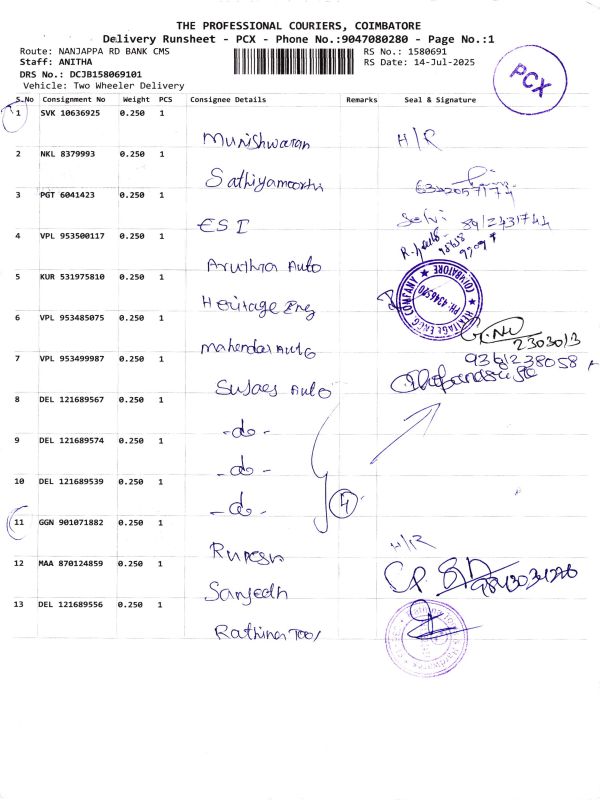 THE PROFESSIONAL COURIERS, COIMBATORE
Delivery Runsheet - PCX - Phone No.:9047080280 - Page No.:1
Route: NANJAPPA RD BANK CMS RS No.: 1580691
Staff: ANITHA RS Date: 14-Jul-2025
DRS No.: DCJB158069101
Vehicle: Two Wheeler Delivery
PCX
S.No Consignment No Weight PCS Consignee Details Remarks Seal & Signature
1 SVK 10636925 0.250 1 Munishwaran H/R
2 NKL 8379993 0.250 1 Sathiyamoorthi
3 PGT 6041423 0.250 1 ESI Selvi
4 VPL 953500117 0.250 1 Aruthra Auto
5 KUR 531975810 0.250 1 Heritage Eng
HERITAGE ENGG COMPANY ★ COIMBATORE ★ PH: 4346590
6 VPL 953485075 0.250 1 Mahendar Auto 2303013
7 VPL 953499987 0.250 1 Sujaes Auto
8 DEL 121689567 0.250 1 -do-
9 DEL 121689574 0.250 1 -do-
10 DEL 121689539 0.250 1 -do- 4
11 GGN 901071882 0.250 1 Rupesh H/R
12 MAA 870124859 0.250 1 Sanjedh
13 DEL 121689556 0.250 1 Rathina Tool